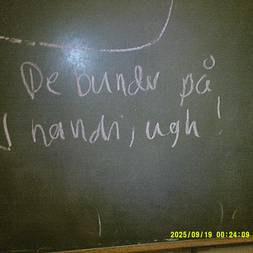 De bunder på
handi, ugh!
2025/09/19 00:24:09